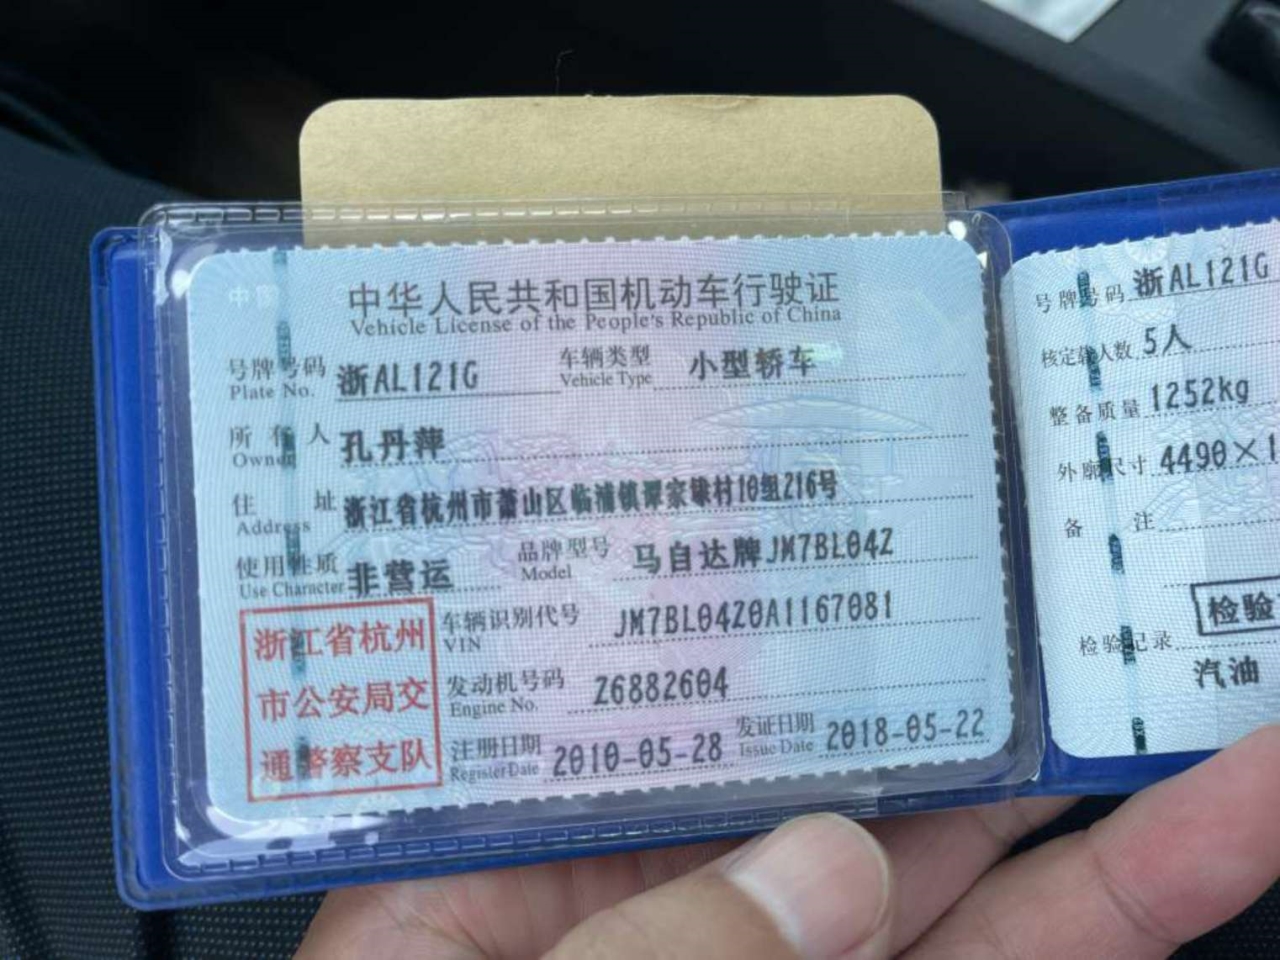 中华人民共和国机动车行驶证
Vehicle License of the People's Republic of China
号牌号码 浙AL121G 车辆类型 小型轿车
Plate No. Vehicle Type
所有人 孔丹萍
Owner
住址 浙江省杭州市萧山区临浦镇谭家埭村10组216号
Address
使用性质 非营运 品牌型号 马自达牌JM7BL04Z
Use Character Model
浙江省杭州
市公安局交
通警察支队
车辆识别代号 JM7BL04Z0A1167081
VIN
发动机号码 Z6882604
Engine No.
注册日期 2010-05-28 发证日期 2018-05-22
Register Date Issue Date
号牌号码 浙AL121G
核定载人数 5人
整备质量 1252kg
外廓尺寸 4490×1
备注
检验
检验记录
汽油